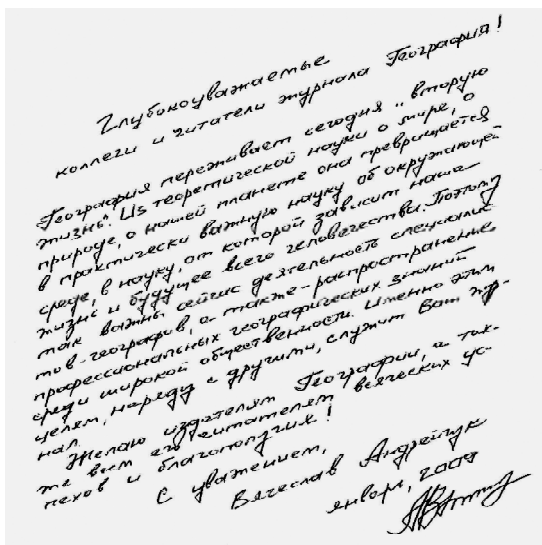 Глубокоуважаемые
коллеги и читатели журнала География!
География переживает сегодня „вторую
жизнь". Из теоретической науки о мире, о
природе, о нашей планете она превращается
в практически важную науку об окружающей
среде, в науку, от которой зависит наша
жизнь и будущее всего человечества. Поэтому
так важны сейчас деятельность специалис-
тов-географов, а также – распространение
профессиональных географических знаний
среди широкой общественности. Именно этим
целям, наряду с другими, служит Ваш жур-
нал.
Желаю издателям Географии, а так-
же всем его читателям всяческих ус-
пехов и благополучия!
С уважением,
Вячеслав Андрейчук
январь, 2009